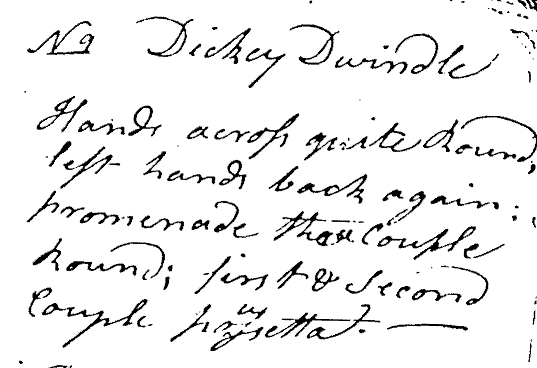 N 9 Dickey Dwindle
Hands across quite Round,
left hands back again:
promenade three Couple
Round; first & Second
Couple